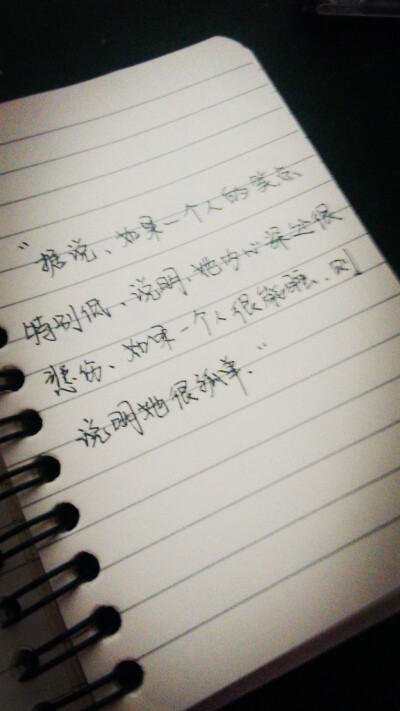 "据说、如果一个人的笑点
特别低、说明她内心深处很
悲伤、如果一个人很能睡、则
说明她很孤单."